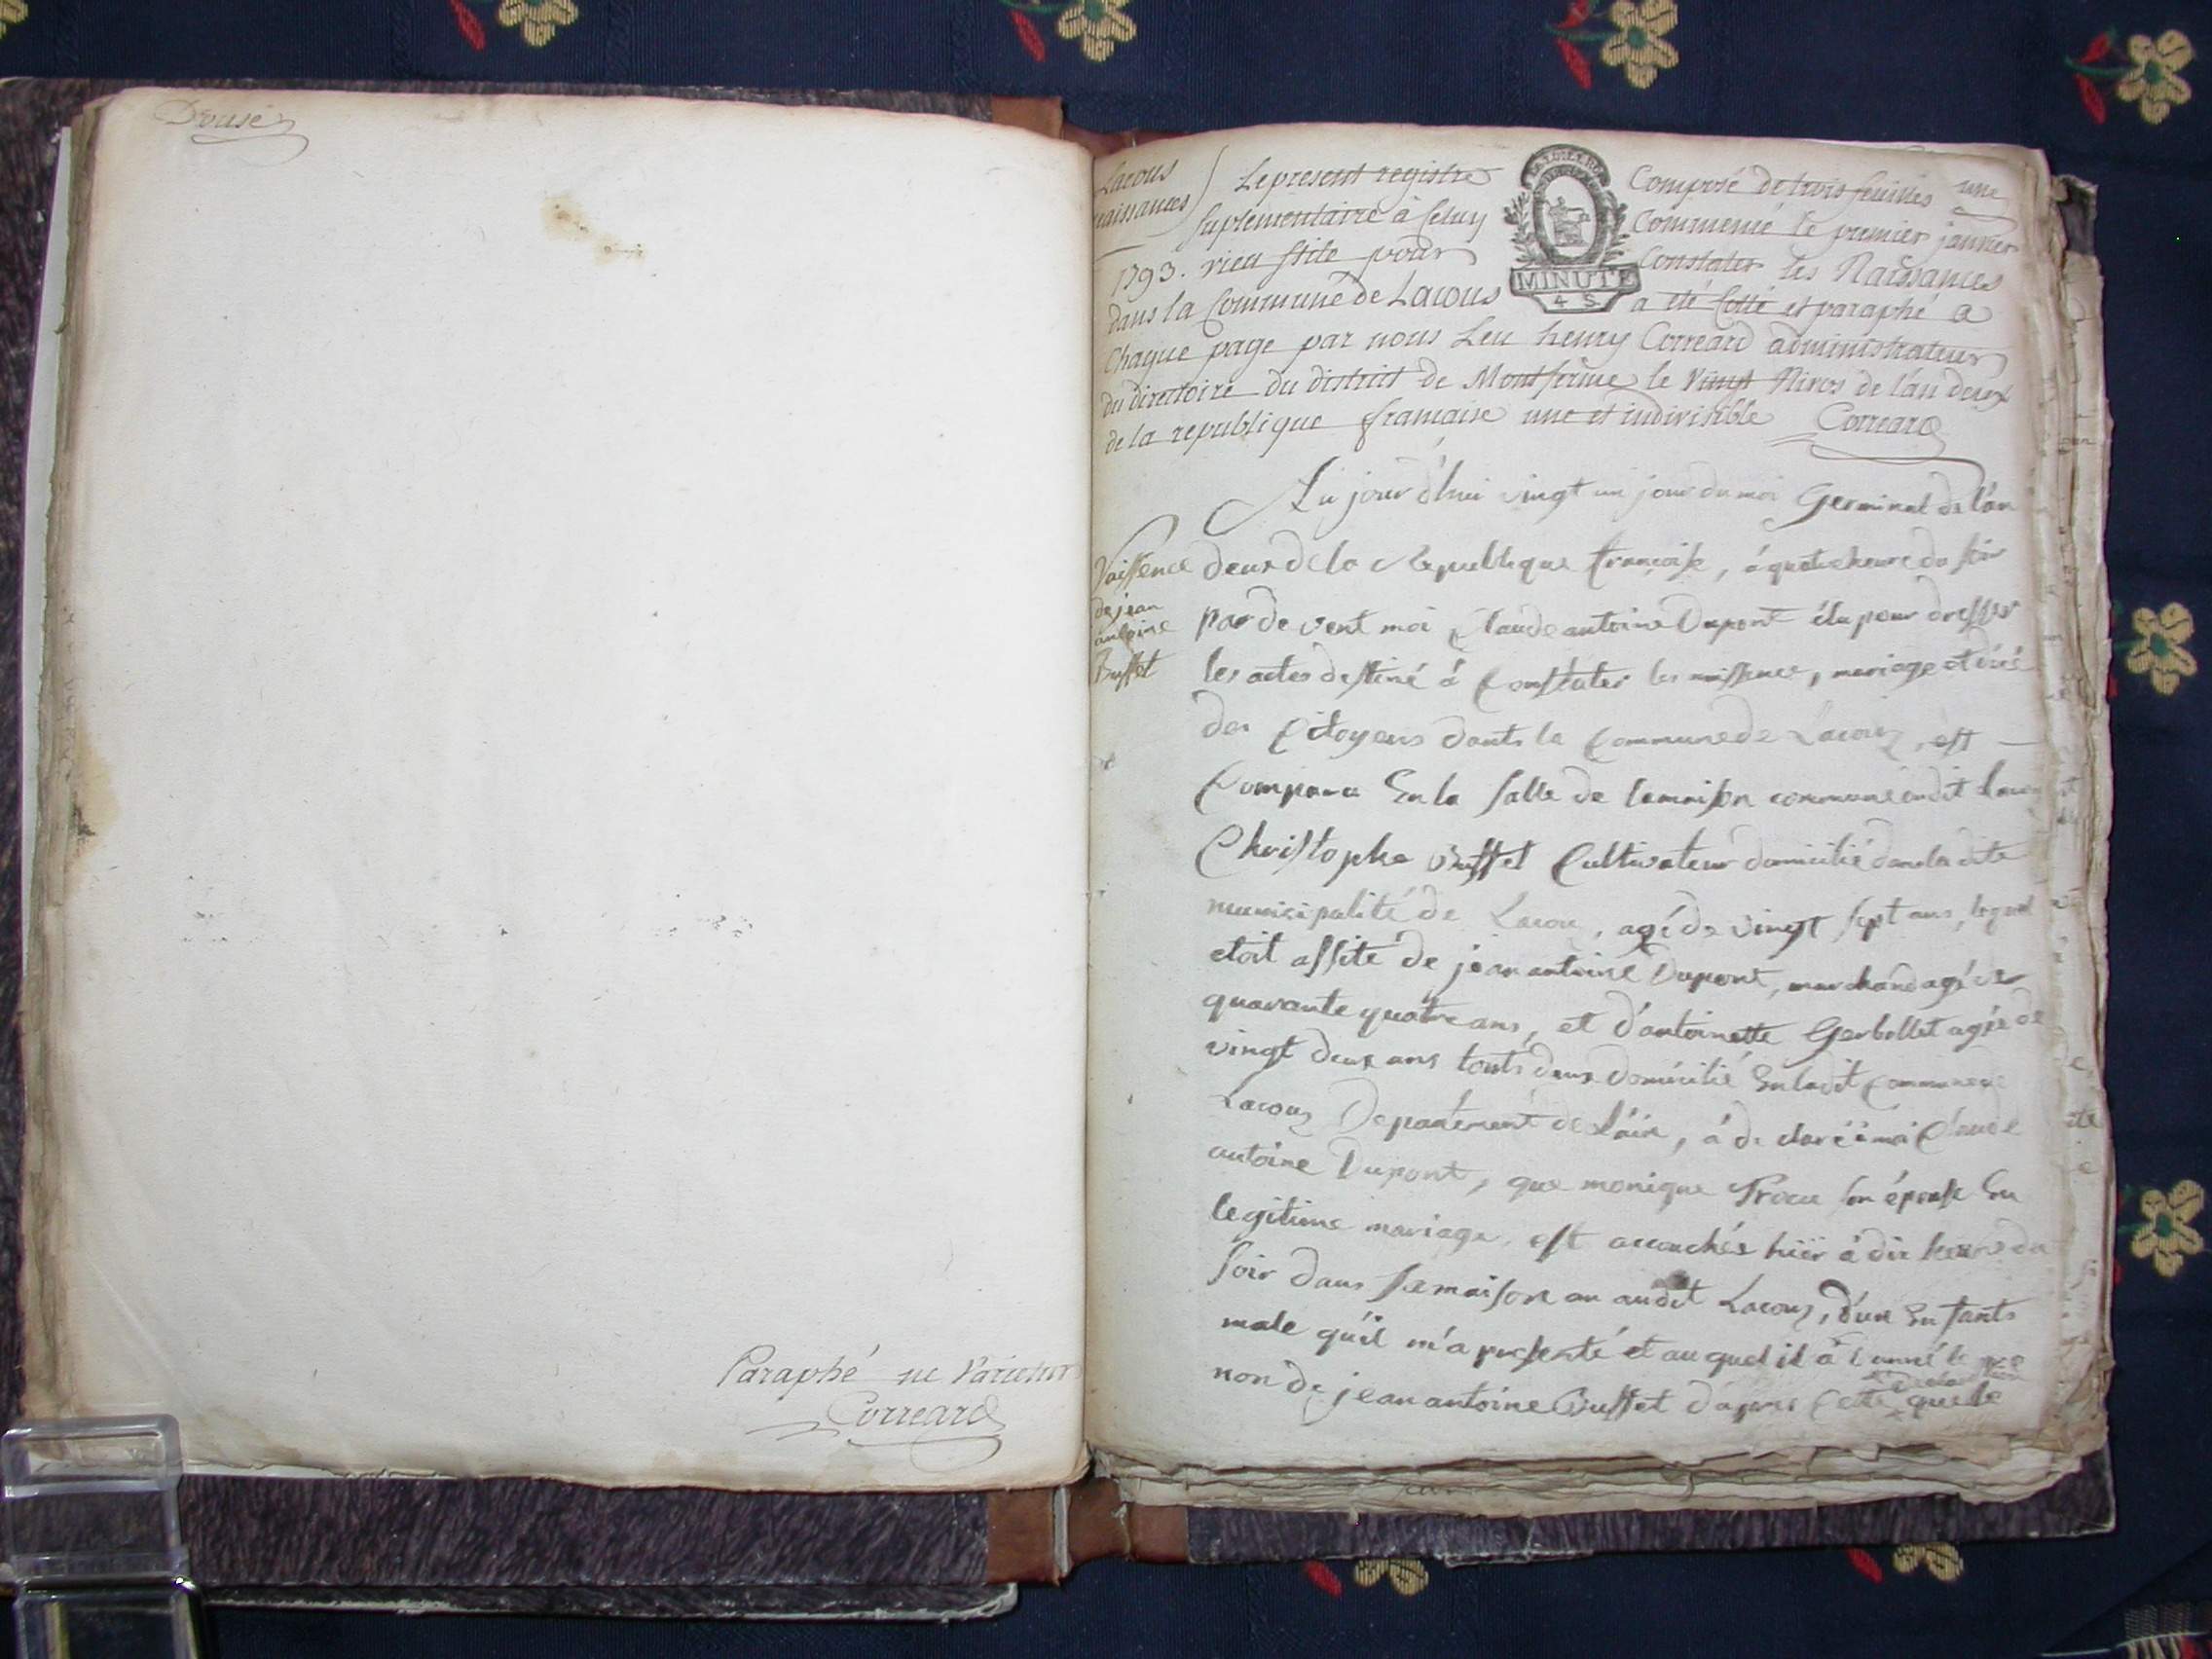 Douse
Paraphé ne Varietur
Correard
Lacous
naissances
Le present registre Composé de trois feuilles une
suplementaire à Celuy Commencé le premier janvier
1793. vieu stile pour Constater les Naissances
dans la Commune de Lacous a été Cotté et paraphé a
MINUTE
4 S
Chaque page par nous Leu henry Correard administrateur
du directoire du district de Montferme le vingt Nivos de l'an deux
de la republique francaise une et indivisible Correard
Lu jour d'hui vingt un jour du moi Germinal de l'an
Naissence
de jean
antoine
Buffet
deux de la Republique francoise, à quatre heure du soir
par de vent moi Claude antoine Dupont élu pour dresser
les actes destiné à Constater les naissence, mariage et décé
des Citoyens dants la Commune de Lacouz, est
Comparu En la salle de lamaison commune audit Lacou
Christophe Buffet Cultivateur domicilié dans la dite
municipalité de Lacouz, agé de vingt sept ans, lequel
etoit assité de jean antoine Dupont, marchand agé de
quarante quatre ans, et d'antoinette Gerbollet agée de
vingt deux ans touts deux domicilié En ladit Commune de
Lacouz Departement de l'ain, à de claré à moi Claude
antoine Dupont, que monique Trocu son épouse En
legitime mariage, est accouchés hiër à dix heures du
soir dans sa maison au audit Lacouz, d'un Enfants
male qu'il m'a presenté et au quel il à donné le
non de jean antoine Buffet d'apres Cette que le